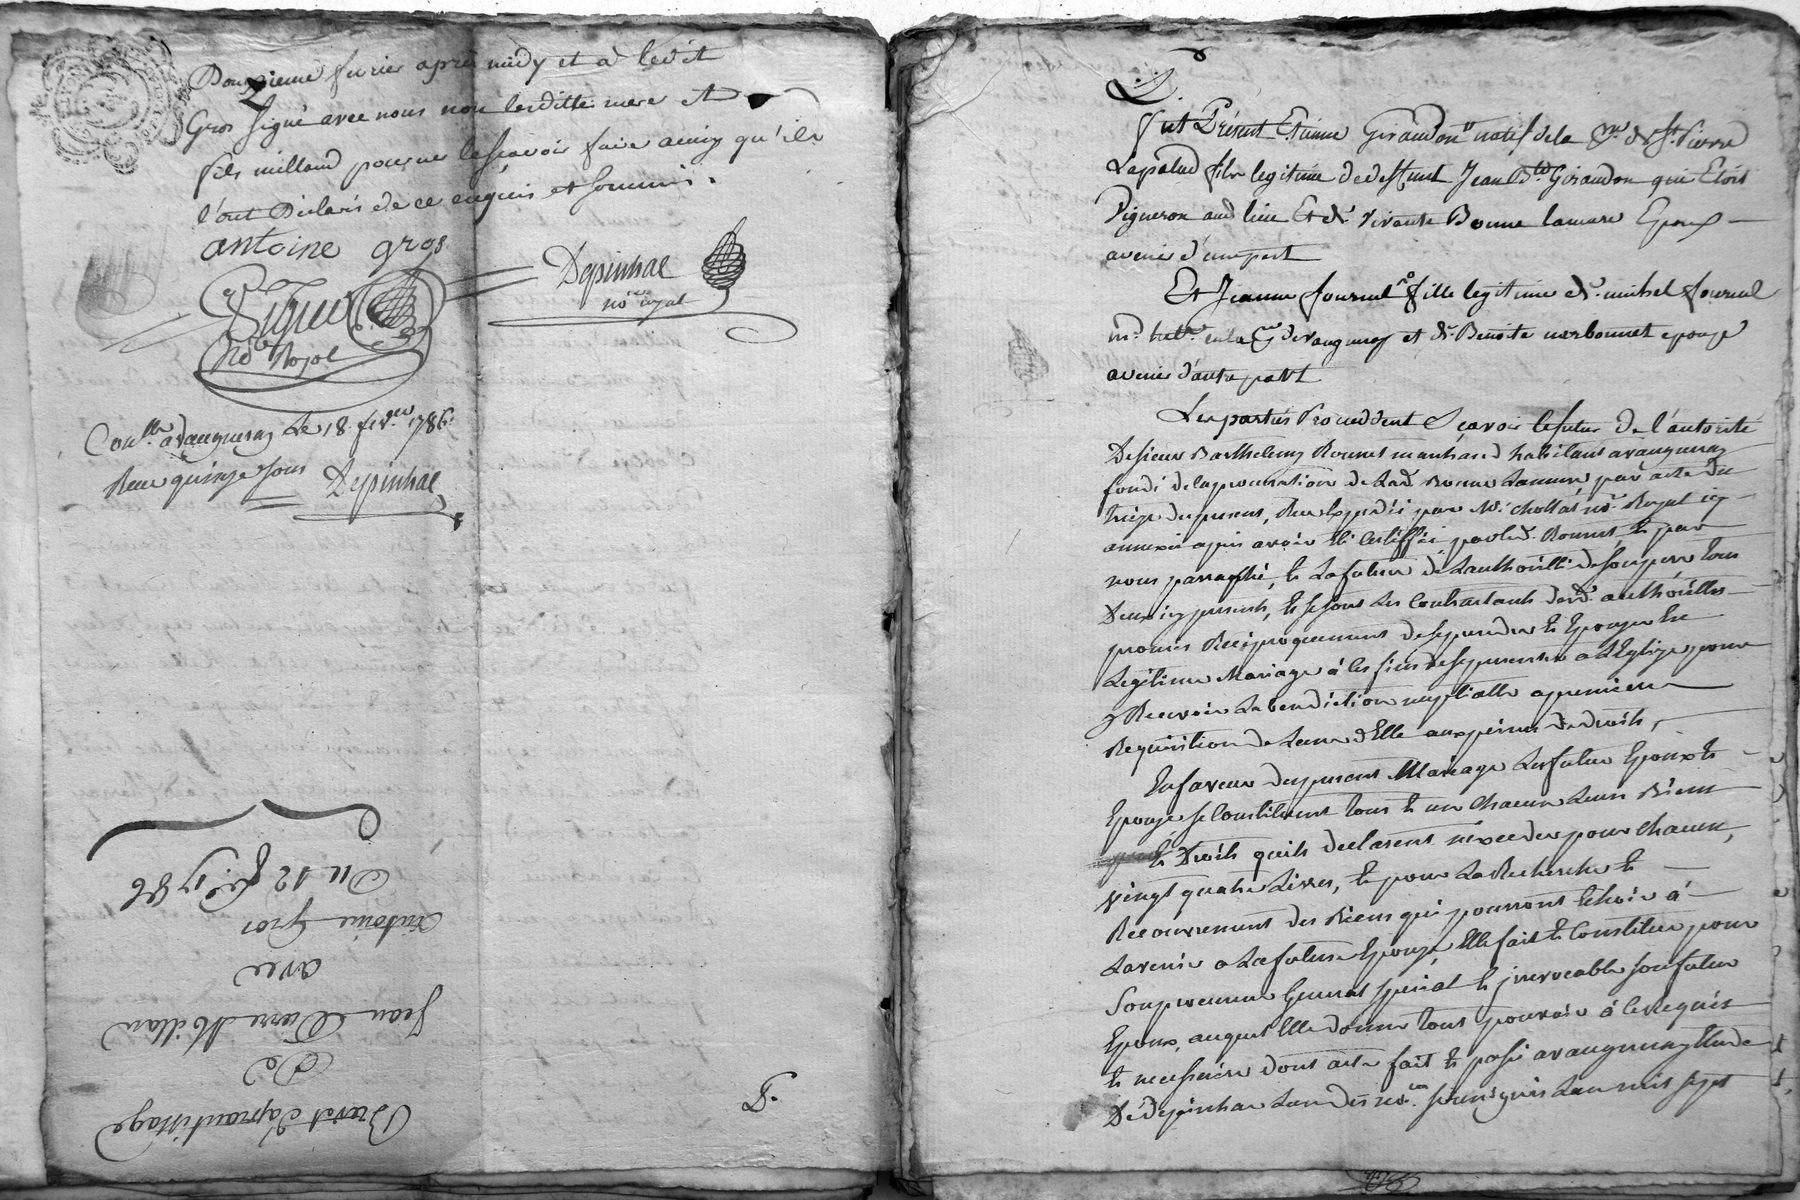 Douzieme fevrier apres midy et a ledit
Gros signé avec nous non lesditte mere et
fils milland pour ne le sçavoir faire ainsy qu'ils
l'ont Déclaré de ce enquis et sommés.
antoine gros
Depinhac
no.re royal
no.re Royal
Con.lle a Vaugneray Le 18 fev.er 1786
Reçu quinze sous Depinhac
Brevet d'aprantissage
De
Jean Pierre Millan
avec
Antoine Gros
Du 12 fe. 1786
fut Présent Etienne Giraudon natif de la p.sse de St. Pierre
Lapalud fils legitime de deffunt Jean B.te Girandon qui Etoit
Vigneron aud lieu Et de vivante Bonne lamure Epoux
avenir d'une part
Et Jeanne fournel fille legitime de michel fournel
m.d hab.t en la p.sse de vaugneray et de Benoite narbonnet epouse
avenir d'autre part
Les parties Procedent Sçavoir le futur De l'autorité
De sieur Barthelemy Bonnet marchand habitant a vaugneray
fondé de la procuration de Lad. Bonne Lamure par acte du
treize du present, Recu Expedié par M.e no.re Royal icy
annexée après avoir Eté Certiffiée par led. Bonnet, Et par
nous parraphé, Et La future De Lauthorité de ses pere tous
Deux icy presents, Et se sont Les Contractants desd. authorittes
promis Reciproquement de se prendre Et Epouser En
Legitime Mariage à Ces fins de se presenter a L'Eglize pour
y Recevoir La benediction nuptialle a premiere
Requisition de Lun d'Elle aux peines de droit,
En faveur du present Mariage Les futurs Epoux Et
Epouse se Constituent tous Et un Chacun Leurs Biens
Et Droits quils declarent n'exceder pour Chacun,
vingt quatre Livres, Et pour La Recherche Et
Recouvrement des Biens qui pourront Echoir à
Lavenir a La future Epouse, Elle fait Et Constitue pour
Son procureur General special Et irrevocable son futur
Epoux, auquel Elle donne tout pouvoir à ce requis
Et necessaire dont acte fait Et passé a vaugneray Etude
De depinhac Lun des no.res soussignés Lan mil sept